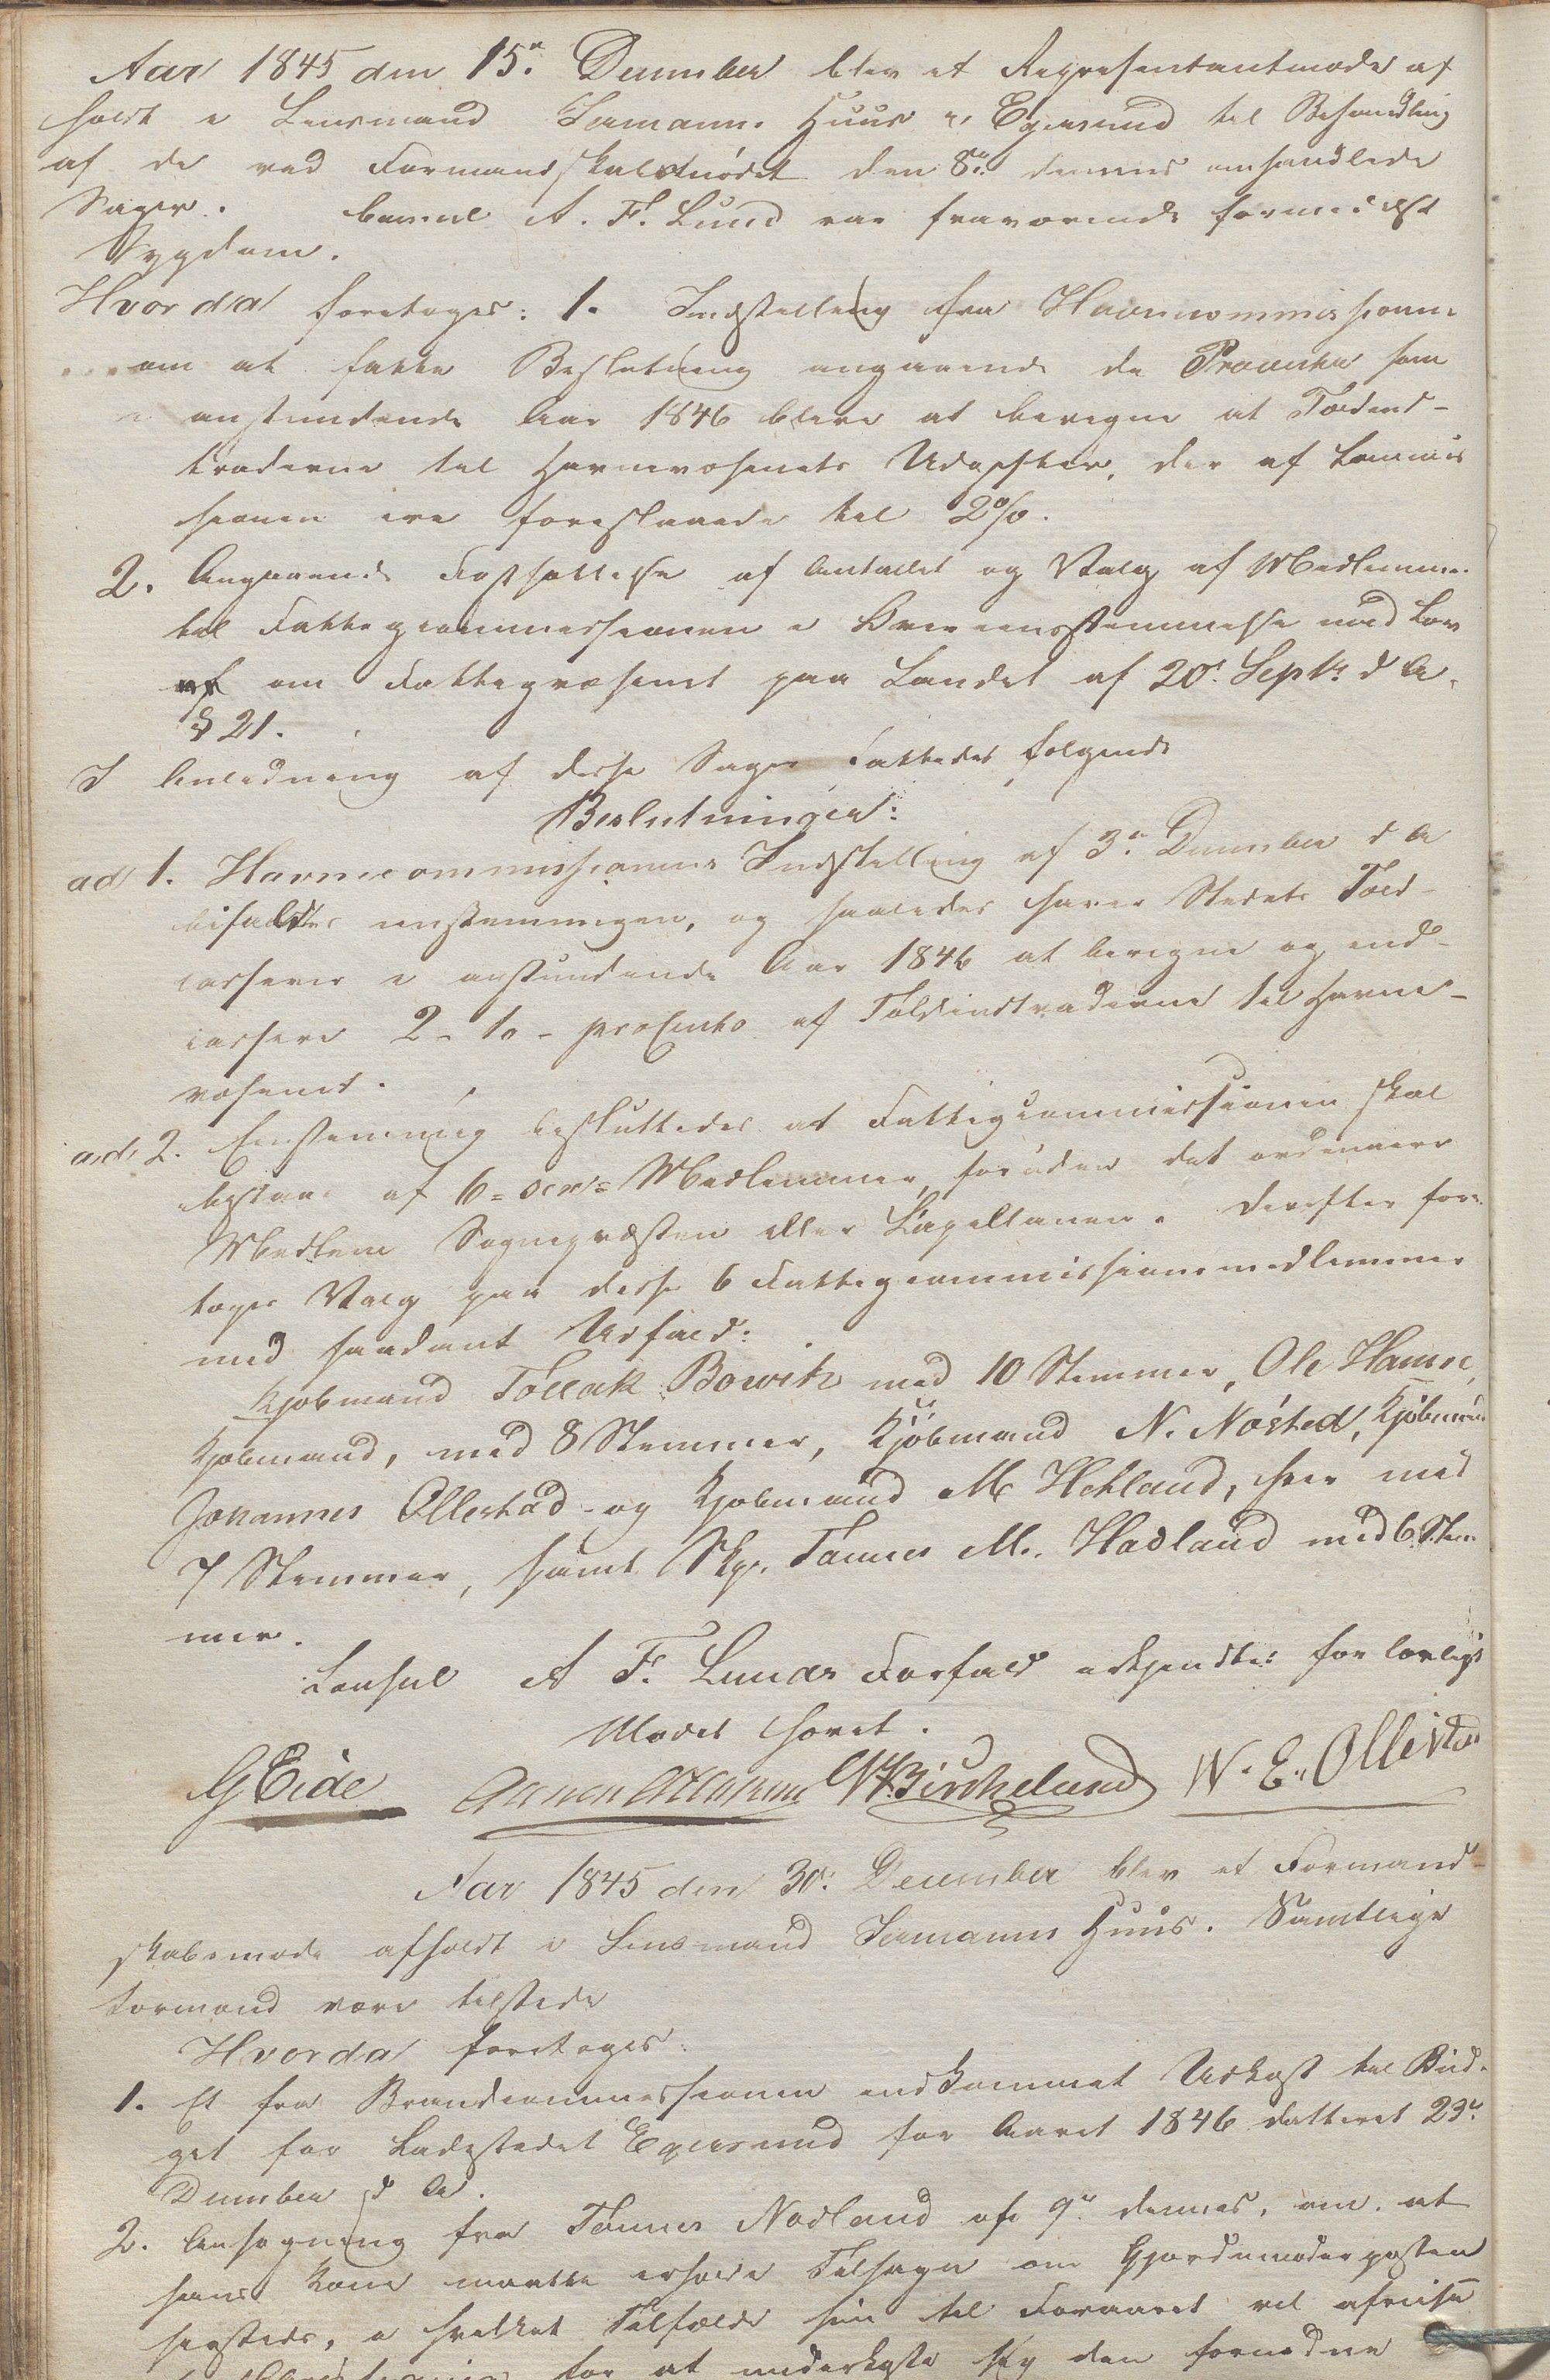 Aar 1845 den 15de December blev et Repræsentantmøde af
holdt i Lensmand Seemanns Huus i Egersund til Behandling
af de ved Formandskabsmødet den 8de dennes omhandlede
Sager. Consul A. F. Lund var fraværende formedelst
Sygdom.
Hvorda foretoges: 1. Indstilling fra Havnecommissionen
om at fatte Beslutning angaaende de Procenter som
i anstundende Aar 1846 blive at beregne af Toldind-
traderne til Havnevæsenets Udgifter, der af Commis
sionen ere foreslaaede til 2%.
2. Angaaende Fastsættelse af Antallet og Valg af Medlemmer
til Fattigcommissionen i Overeensstemmelse med Lov
om Fattigvæsenet paa Landet af 20de Septbr d A.
§ 21.
I Anledning af disse Sager fattedes følgende
Beslutninger:
ad 1. Havnecommissionens Indstilling af 3de December d A
bifaldtes eenstemmigen, og saaledes haver Stedets Told-
casserer i anstundende Aar 1846 at beregne og ind-
cassere 2- to - procento af Toldindtraderne til Havne-
væsenet.
ad 2. Eenstemmig besluttedes at Fattigcommissionen skal
bestaae af 6 = sex = Medlemmer, foruden det ordinaire
Medlem Sognepræsten eller Capellanen. Derefter fore
toges Valg paa disse 6 Fattigcommissionsmedlemmer
med saadant Udfald:
Kjøbmand Tollak Bowitz med 10 Stemmer, Ole Hamre,
Kjøbmand, med 8 Stemmer, Kjøbmand N. Nøsted, Kjøbmand
Johannes Ollestad og Kjøbmand M Hetland, hver med
7 Stemmer, samt Skp. Tønnes M. Hadland med 6 Stem
mer.
Consul A F. Lunds Forfald erkjendtes for lovligt
Mødet hævet.
G Eide Birkeland W. E. Ollestad
Aar 1845 den 30de December blev et Formand-
skabsmøde afholdt i Lensmand Seemanns Huus. Samtlige
Formænd vare tilstede
Hvorda foretoges:
1. Et fra Brandcommissionen indkommet Udkast til Bud-
get for Ladestedet Egersund for Aaret 1846 datteret 23de
December d A.
2. Ansøgning fra Tønnes Nodland af 9de dennes, om at
hans Kone maatte erholde Tilsagn om Gjordemoderposten
hersteds, i hvilket Tilfælde hun til Foraaret vil afreise
for at underkaste sig den fornødne